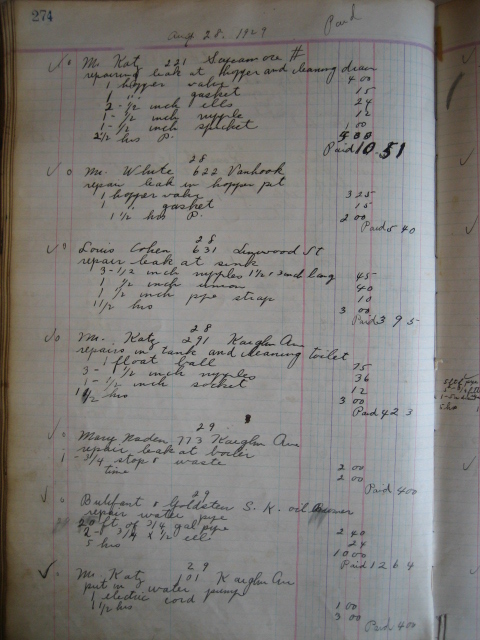 274
Aug 28. 1929 Paid
Mr. Katz 221 Sycamore #
repairing leak at Hopper and cleaning drain
1 hopper valve 400
1 " gasket 15
2 - 1/2 inch ells 24
1 - 1/2 inch nypple 12
1 - 1/2 inch spicket 1 00
2 1/2 hrs P.
Paid 10.51
28
Mr. White 622 Vanhook
repair leak in hopper pt
1 hopper valve 3 25
1 " gasket 15
1 1/2 hrs P. 2 00
Paid 5 40
28
Louis Cohen 631 Linwood St
repair leak at sink
3 - 1/2 inch nypples 1 1/2 & 2 inch long 45
1 1/2 inch union 40
1 1/2 inch pipe strap 10
1 1/2 hrs 3 00
Paid 3 95
28
Mr. Katz 291 Kaighn Ave
repairs in tank and cleaning toilet
1 float ball 75
3 - 1/2 inch nypples 36
1 - 1/2 inch socket 12
1 1/2 hrs 3 00
Paid 4 23
29
Mary Naden 773 Kaighn Ave
repair leak at boiler
1 - 3/4 stop & waste 2 00
time 2 00
Paid 4 00
29
& Goldstein S. K. oil
repair water pipe
20 ft of 3/4 gal pipe 2 40
2 - 3/4 x 1/2 ells 24
5 hrs 10 00
Paid 12 64
29
Mr. Katz 101 Kaighn Ave
put in water pump
1 electric cord 1 00
1 1/2 hrs 3 00
Paid 4 00